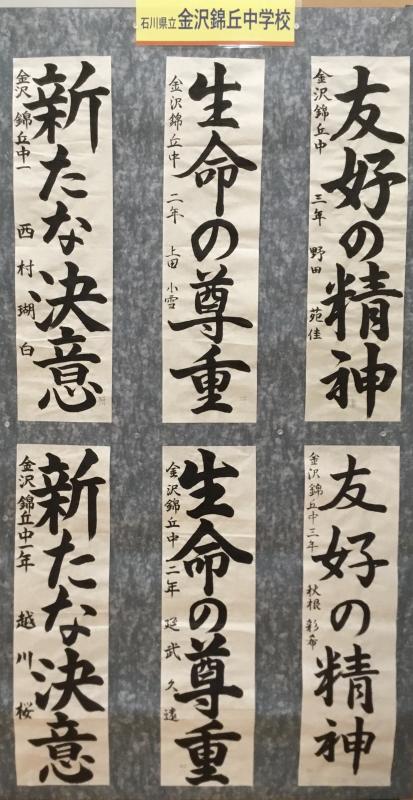 石川県立金沢錦丘中学校
友好の精神
金沢錦丘中 三年 野田 苑佳
生命の尊重
金沢錦丘中 二年 上田 小雪
新たな決意
金沢錦丘中一 西村瑚白
友好の精神
金沢錦丘中三年 秋根 彰希
生命の尊重
金沢錦丘中 二年 延武 久遠
新たな決意
金沢錦丘中一年 越川 桜